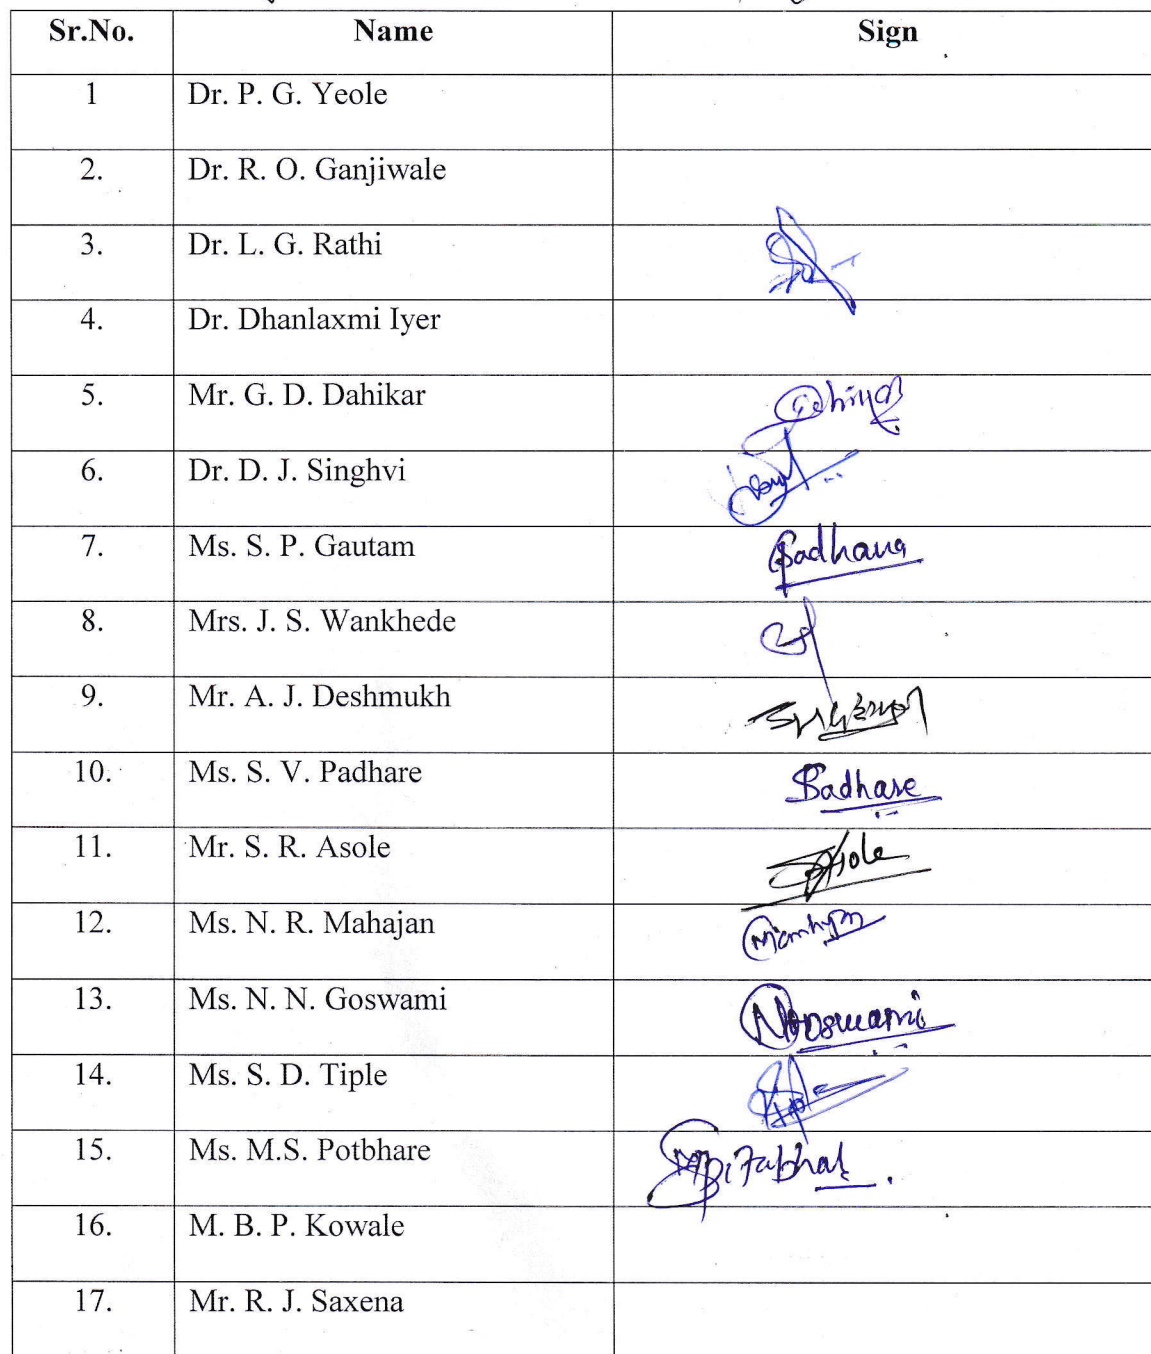 Sr.No. Name Sign
1 Dr. P. G. Yeole
2. Dr. R. O. Ganjiwale
3. Dr. L. G. Rathi
4. Dr. Dhanlaxmi Iyer
5. Mr. G. D. Dahikar
6. Dr. D. J. Singhvi
7. Ms. S. P. Gautam Sadhana
8. Mrs. J. S. Wankhede
9. Mr. A. J. Deshmukh
10. Ms. S. V. Padhare Padhare
11. Mr. S. R. Asole
12. Ms. N. R. Mahajan
13. Ms. N. N. Goswami
14. Ms. S. D. Tiple
15. Ms. M.S. Potbhare
16. M. B. P. Kowale
17. Mr. R. J. Saxena